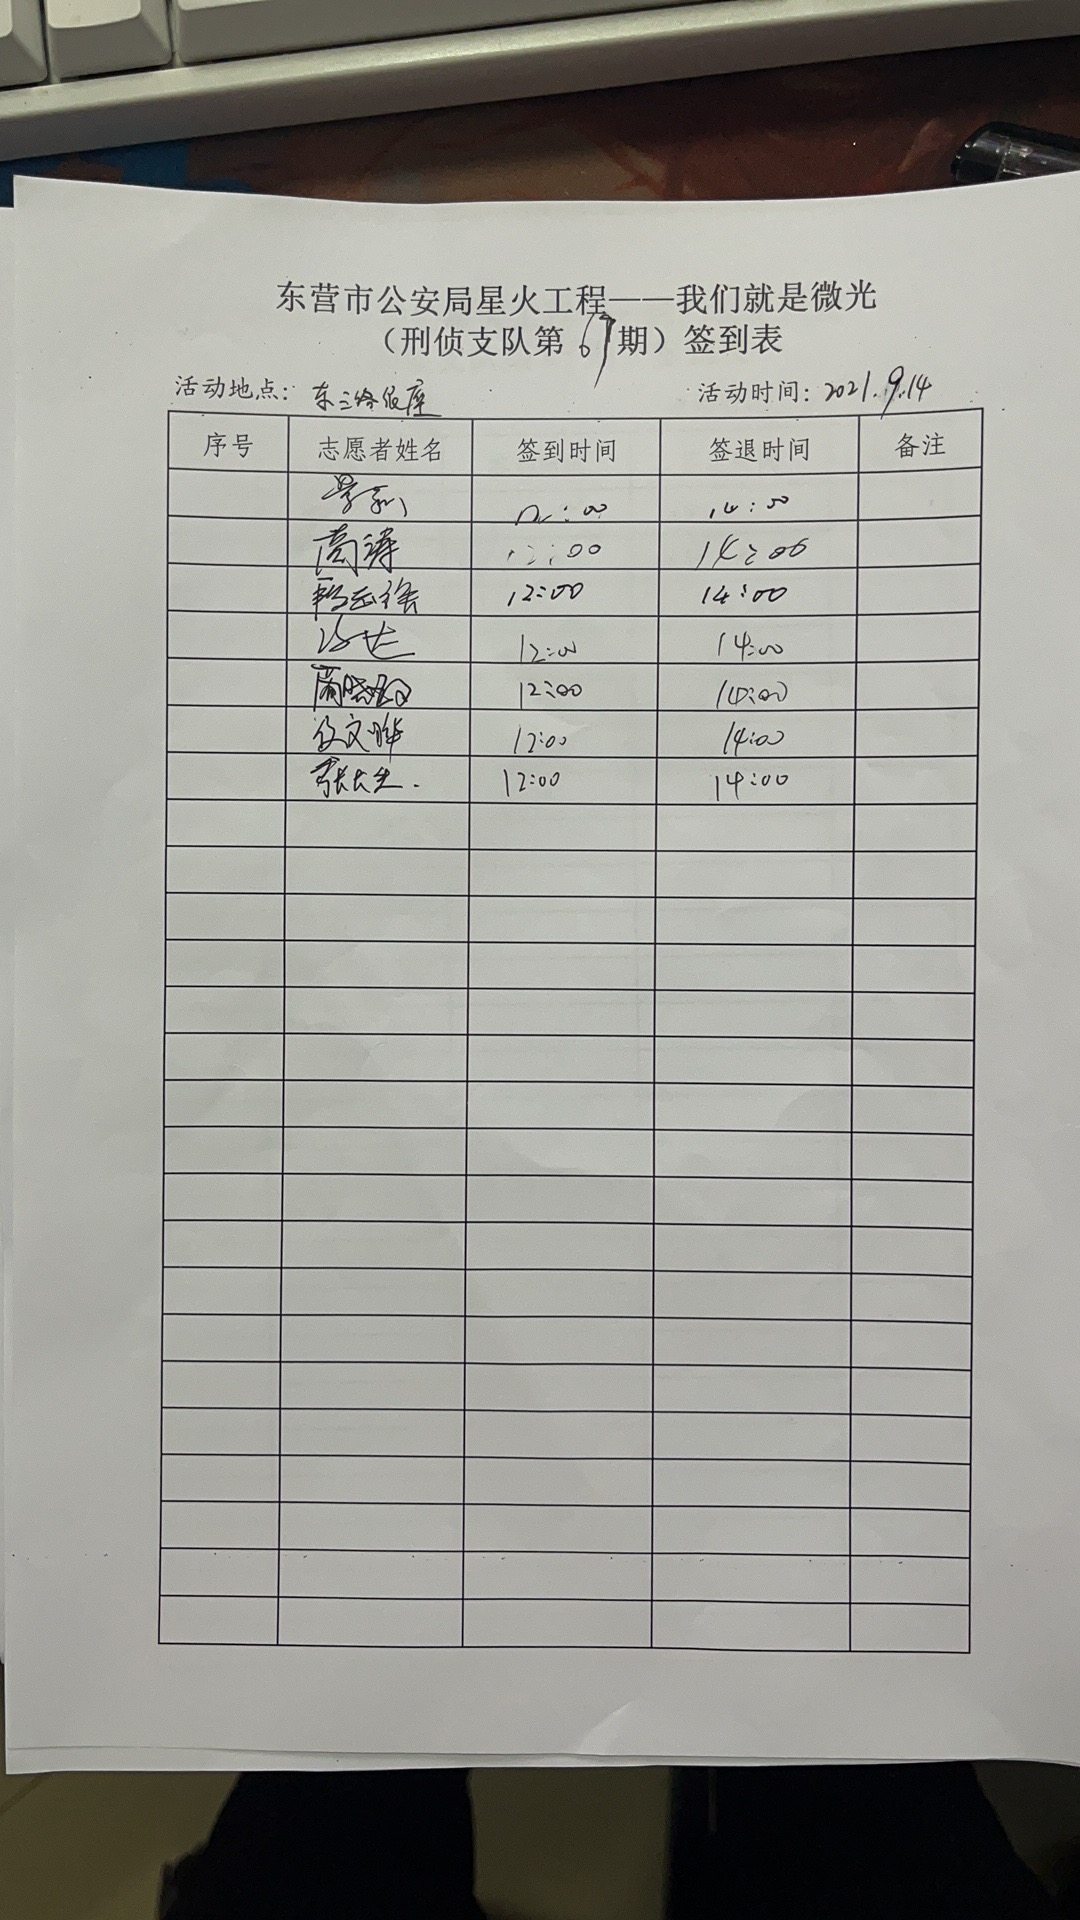 东营市公安局星火工程——我们就是微光
（刑侦支队第67期）签到表
活动地点： 东三路
活动时间：2021.9.14
序号 志愿者姓名 签到时间 签退时间 备注
12:00 14:00
高涛 12:00 14:00
12:00 14:00
12:00 14:00
12:00 14:00
文晔 12:00 14:00
张大生. 12:00 14:00